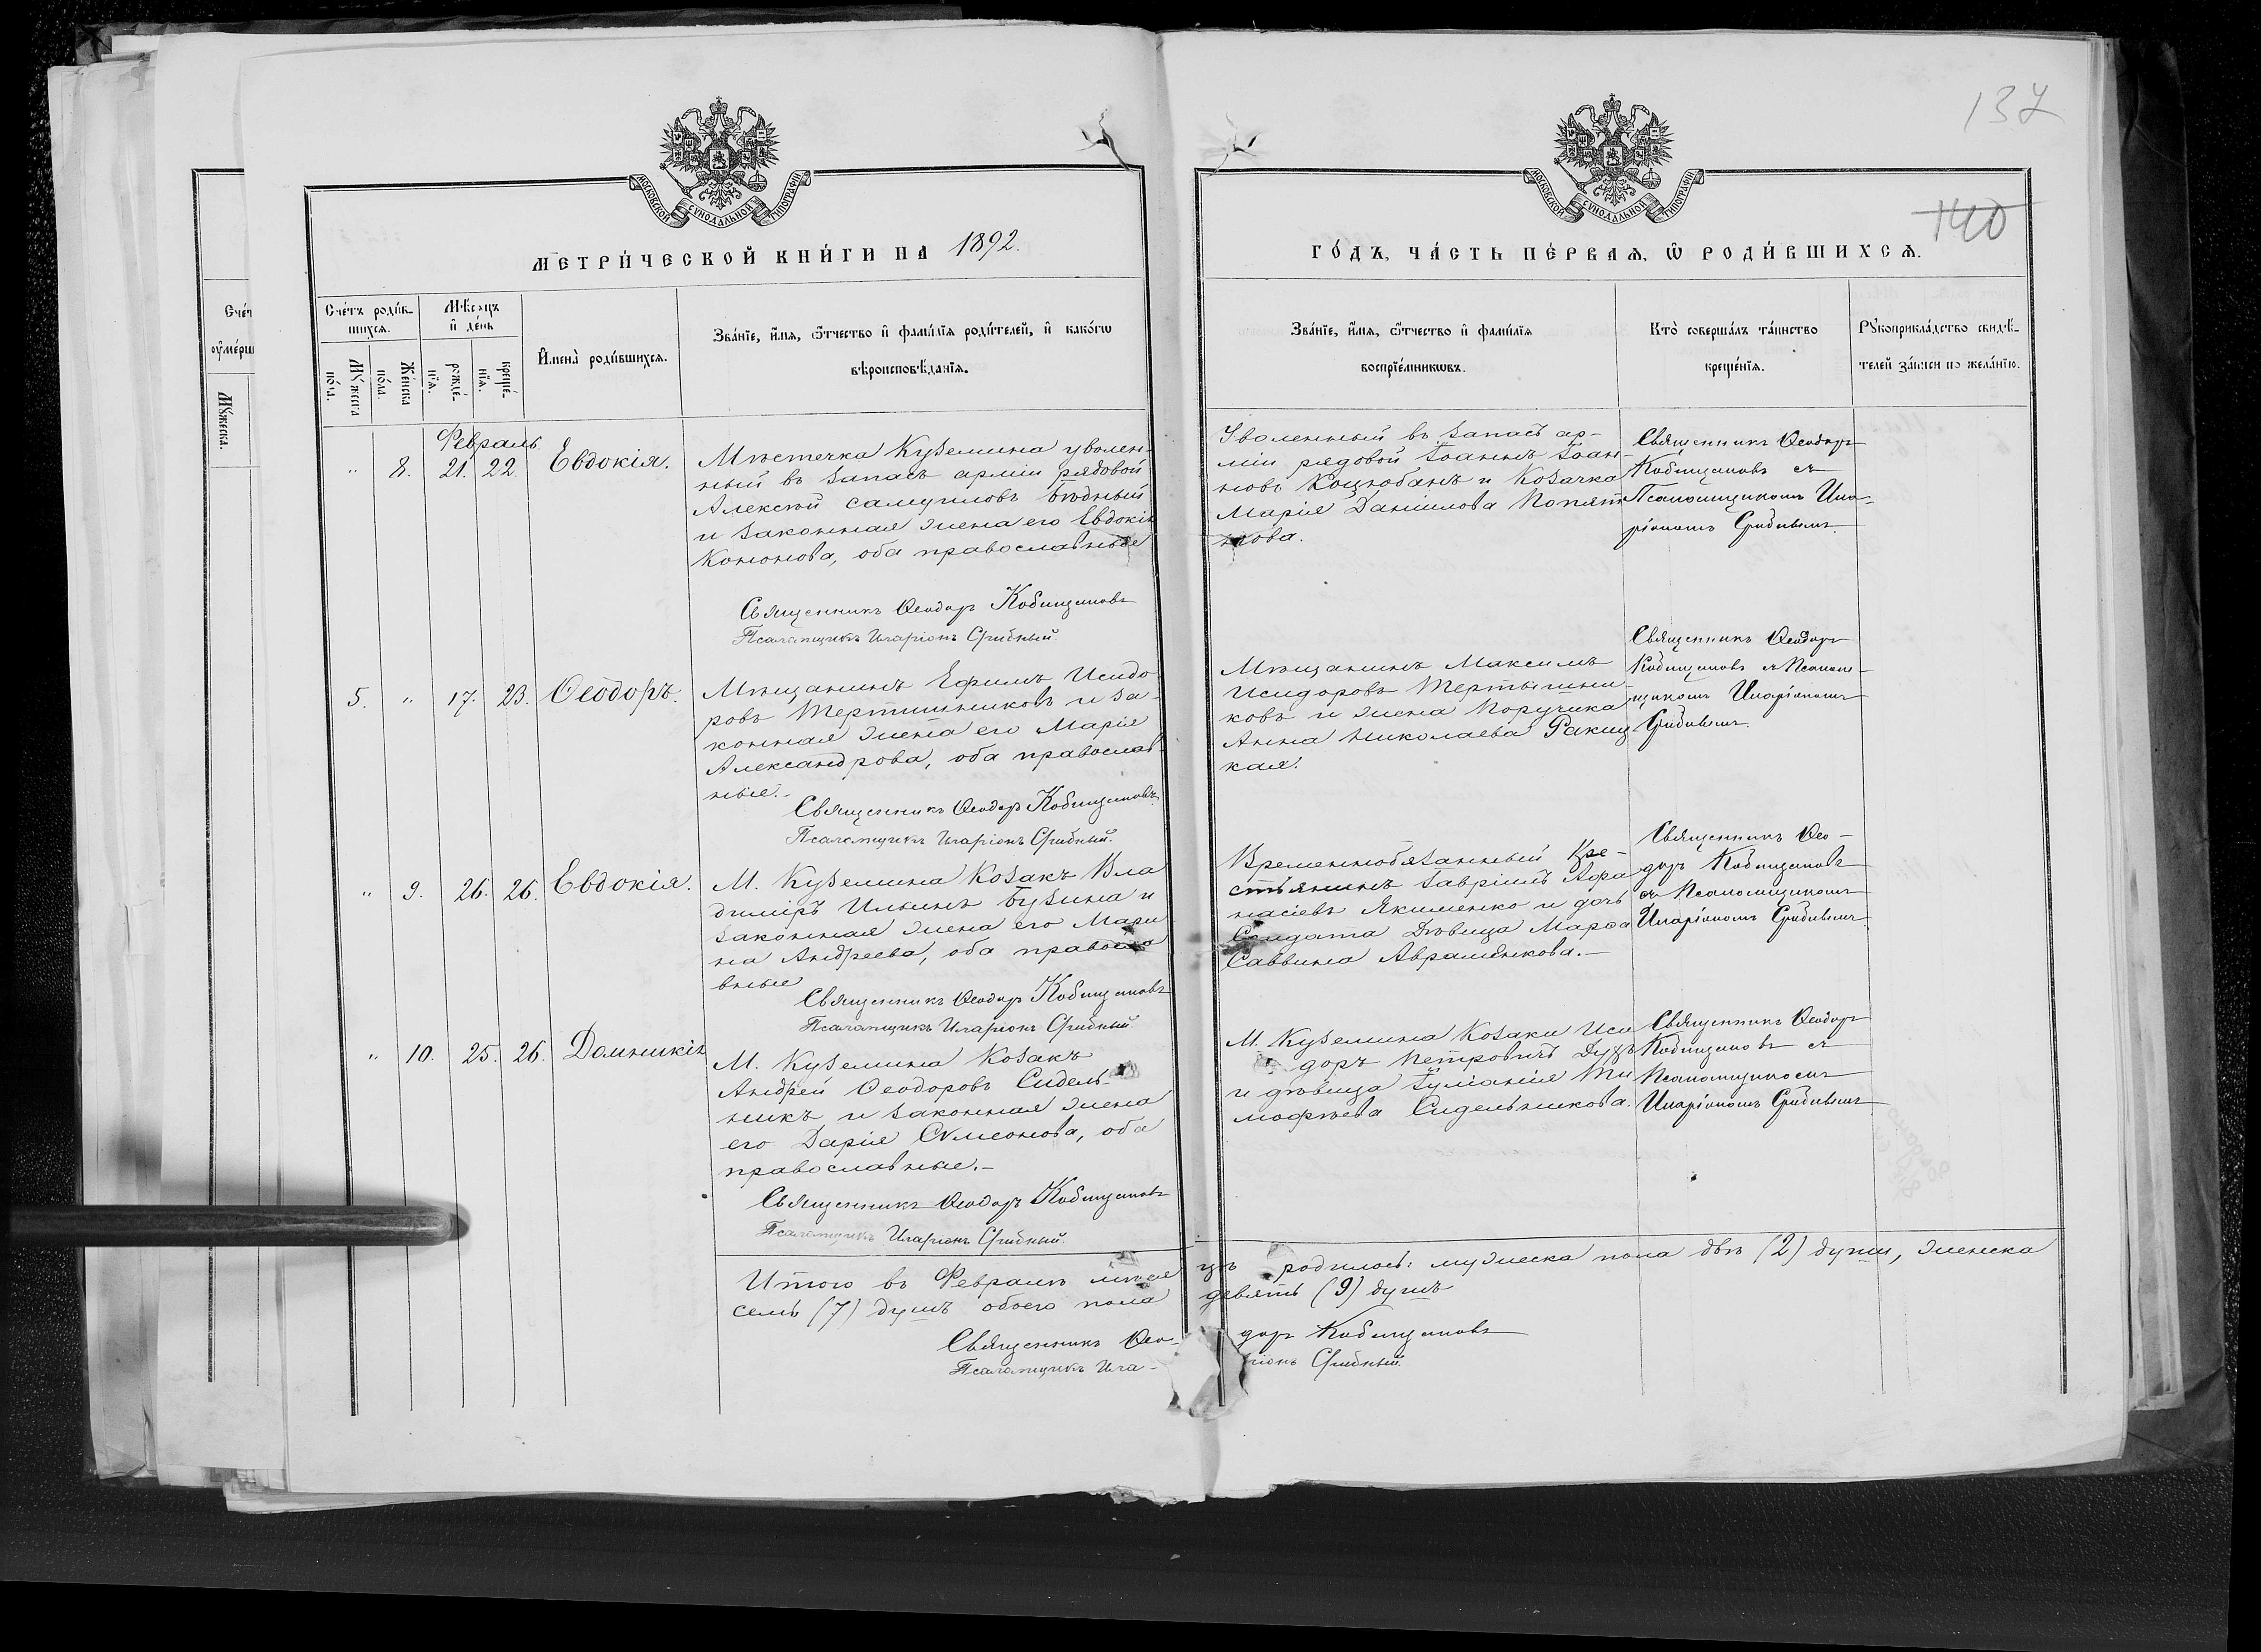 137
140
МОСКОВСКОЙ СѴНОДАЛЬНОЙ ТИПОГРАФІИ
МОСКОВСКОЙ СѴНОДАЛЬНОЙ ТИПОГРАФІИ
МЕТРИ́ЧЕСКОЙ КНИ́ГИ НА 1892.
ГО́ДЪ, ЧА́СТЬ ПЕ́РВАѦ, Ѡ҆ РОДИ́ВШИХСѦ.
Сче́тъ роди́в-
шихсѧ.
Мꙋ́жеска
по́ла.
Же́нска
по́ла.
Мѣ́сѧцъ
и҆ де́нь
рожде́-
нїѧ.
креще́-
нїѧ.
И҆мена̀ роди́вшихсѧ.
Зва́нїе, и҆́мѧ, ѻ҆́тчество и҆ фами́лїѧ роди́телей, и҆ како́гѡ
вѣроисповѣ́данїѧ.
Зва́нїе, и҆́мѧ, ѻ҆́тчество и҆ фами́лїѧ
воспрїе́мникѡвъ.
Кто̀ соверша́лъ та́инство
креще́нїѧ.
Рꙋкоприкла́дство свидѣ́-
телей за́писи по жела́нїю.
Мꙋ́жеска.
Февраль
" 8. 21. 22. Евдокія.
Мѣстечка Куземина уволен-
ный въ запасъ арміи рядовой
Алексѣй Самуиловъ Бѣдный
и законная жена его Евдокія
Кононова, оба православные
Священникъ Ѳеодоръ Кобищановъ
Псаломщикъ Иларіонъ Срибный.
Уволенный въ запасъ ар-
міи рядовой Іоаннъ Іоан-
новъ Коцюбанъ и Козачка
Марія Даніилова Попят
нова.
Священникъ Ѳеодоръ
Кобищановъ съ
Псаломщикомъ Ила-
ріономъ Срибнымъ
5. " 17. 23. Ѳеодоръ.
Мѣщанинъ Ефимъ Исидо
ровъ Тертишниковъ и за-
конная жена его Марія
Александрова, оба православ-
ные.-
Священникъ Ѳеодоръ Кобищановъ
Псаломщикъ Иларіонъ Срибный.
Мѣщанинъ Максимъ
Исидоровъ Тертышни-
ковъ и жена Поручика
Анна Николаева Ракиц
кая.
Священникъ Ѳеодоръ
Кобищановъ съ Псалом-
щикомъ Иларіономъ
Срибнымъ.
" 9. 26. 26. Евдокія.
М. Куземина Козакъ Вла
диміръ Ильинъ Бузина и
законная жена его Мари
на Андреева, оба правосла
вные
Священникъ Ѳеодоръ Кобищановъ
Псаломщикъ Иларіонъ Срибный
Временнобязанный Кре-
стьянинъ Гавріилъ Афа
насіевъ Якименко и дочь
Солдата Дѣвица Марѳа
Саввина Авраменкова.-
Священникъ Ѳео-
доръ Кобищановъ
съ Псаломщикомъ
Иларіономъ Срибнымъ
" 10. 25. 26. Домникія
М. Куземина Козакъ
Андрей Ѳеодоровъ Сидель-
никъ и законная жена
его Дарія Сѵмеонова, оба
православные.-
Священникъ Ѳеодоръ Кобищановъ
Псаломщикъ Иларіонъ Срибный.
М. Куземина Козаки Иси
доръ Петровичъ
и дѣвица Іуліанія Ти
мофѣева Сидельникова.
Священникъ Ѳеодоръ
Кобищановъ съ
Псаломщикомъ
Иларіономъ Срибнымъ
Итого въ Февралѣ мѣсяцѣ родилось: мужеска пола двѣ (2) души, женска
семь (7) душъ обоего пола девять (9) душъ
Священникъ Ѳеодоръ Кобищановъ
Псаломщикъ Иларіонъ Срибный.